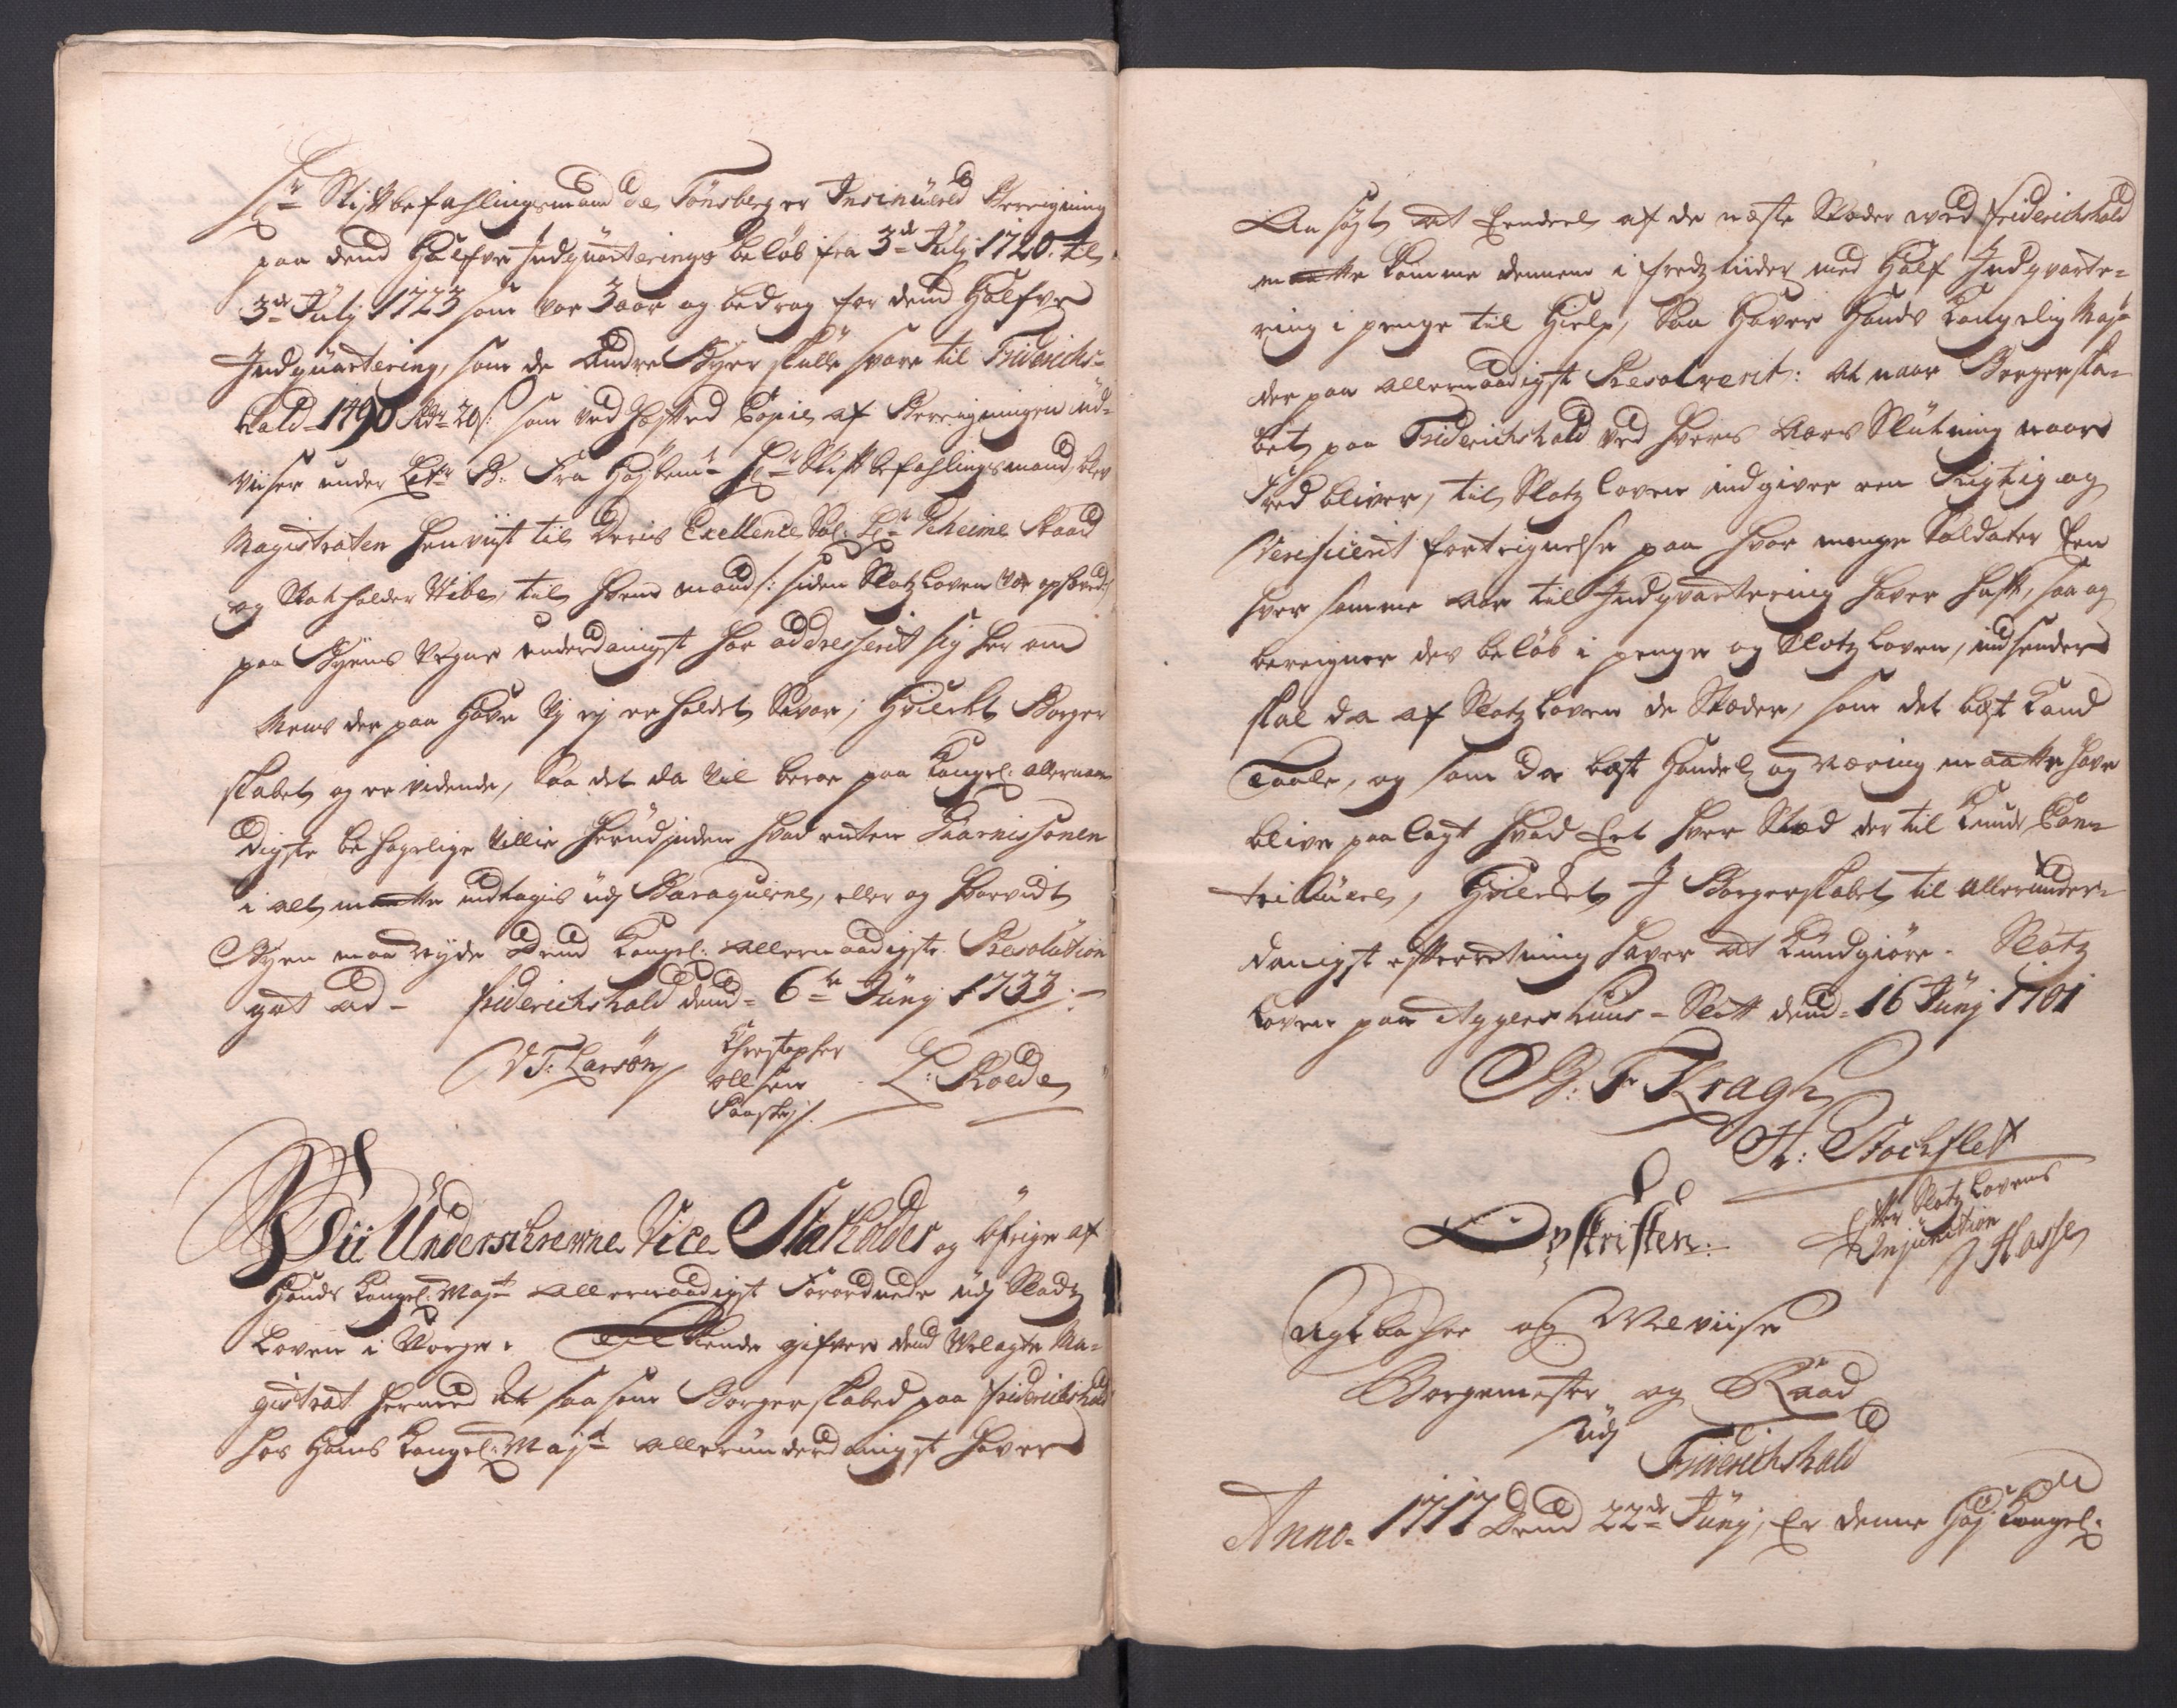 Hr Stiftbefahlingsmand de Tønsberg er Insinuered Beregning
paa dend Halfve Indqvarterings beløb fra 3de July 1720. til
3de July 1723 som var 3 aar og bedrog for dend Halfve
Indqvartering, som de Andre Byer skulle svare til Friderichs-
hald 1490 Rdr 20 s: som ved hæfted Copie af Beregningen ud-
viiser under Litr B. Fra Højbemt Hr Stiftbefahlingsmand, blev
Magistraten henviist til Deris Excellence Sal: Hr Geheime Raad
og Statholder Wibe, til hvem mand /: siden Slotzloven var ophævet :/
paa Byens Vegne underdanigst har addresserit sig her om
Mens der paa have Vj ej er holdet Svar; Hvilket Borger
skabet og er vidende, Saa det da vil beroe paa Kongel: allernaa-
digste behagelige Villie herudinden hvad enten Guarnissonen
i alt maatte indtages udj Baraquerne, eller og hvorvidt
Byen maa nyde Dend Kongel: allernaadigste Resolution
got ad - Friderichshald dend 6te Junj 1733.
V T: Larsøn Christopher
Ollsen
Paaske L: Roede
Vii Underschrewne Vice Statholder og Øfrige af
Hands Kongel: Mayt allernaadigst Forordnede udj Slotz
Loven i Norge. Till Kiende gifver dend Velagte Ma-
gistrat hermed At saa som Borgerskabed paa Friderichshald
hos Hans Kongel: Mayt allerunderdanigst haver
Ansøgt at Eendeel af de neste Stæder ved Friderichshald
maatte komme dennem i fredz tiider med Half Indqvarte-
ring i penge til Hielp, Saa haver Hands Kongelig Mayt
der paa allernaadigst Resolverit: At naar Borgerska-
bet paa Friderichshald ved hvers Aars Slutning naar
Fred bliver, til Slotzloven indgiver een Rigtig og
Verificerit fortegnelse paa hvor mange Soldater Een
hver samme Aar til Indqvartering haver haft, saa og
beregner dev beløb i penge og Slotzloven, indsender
skal da af Slotzloven de Stæder, som det best kand
Taale, og som da best Handel og Næring maatte have
blive paalagt hvad Eet hver Stæd der til kunde Con-
tribuere, Hvilcket J Borgerskabet til Allerunder-
danigst efterretning haver at kundgiøre. Slotz
Loven paa Aggershuus-Slott dend 16 Junj 1701
B: F Kragh
H: Stochflet
Efter Slotz Lovens
Injunction
J Hassel
Opskriften:
Agtbahre og Velviise
Borgemester og Raad
udj
Friderichshald
Anno 1717 Dend 22de Junj, Er denne Høj Kongel: